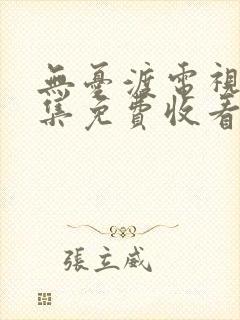 無憂渡電視
集免費收看
張立威